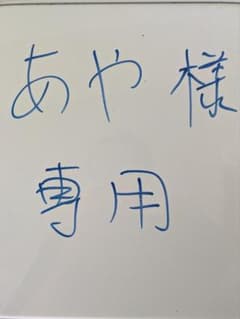 あや様
専用